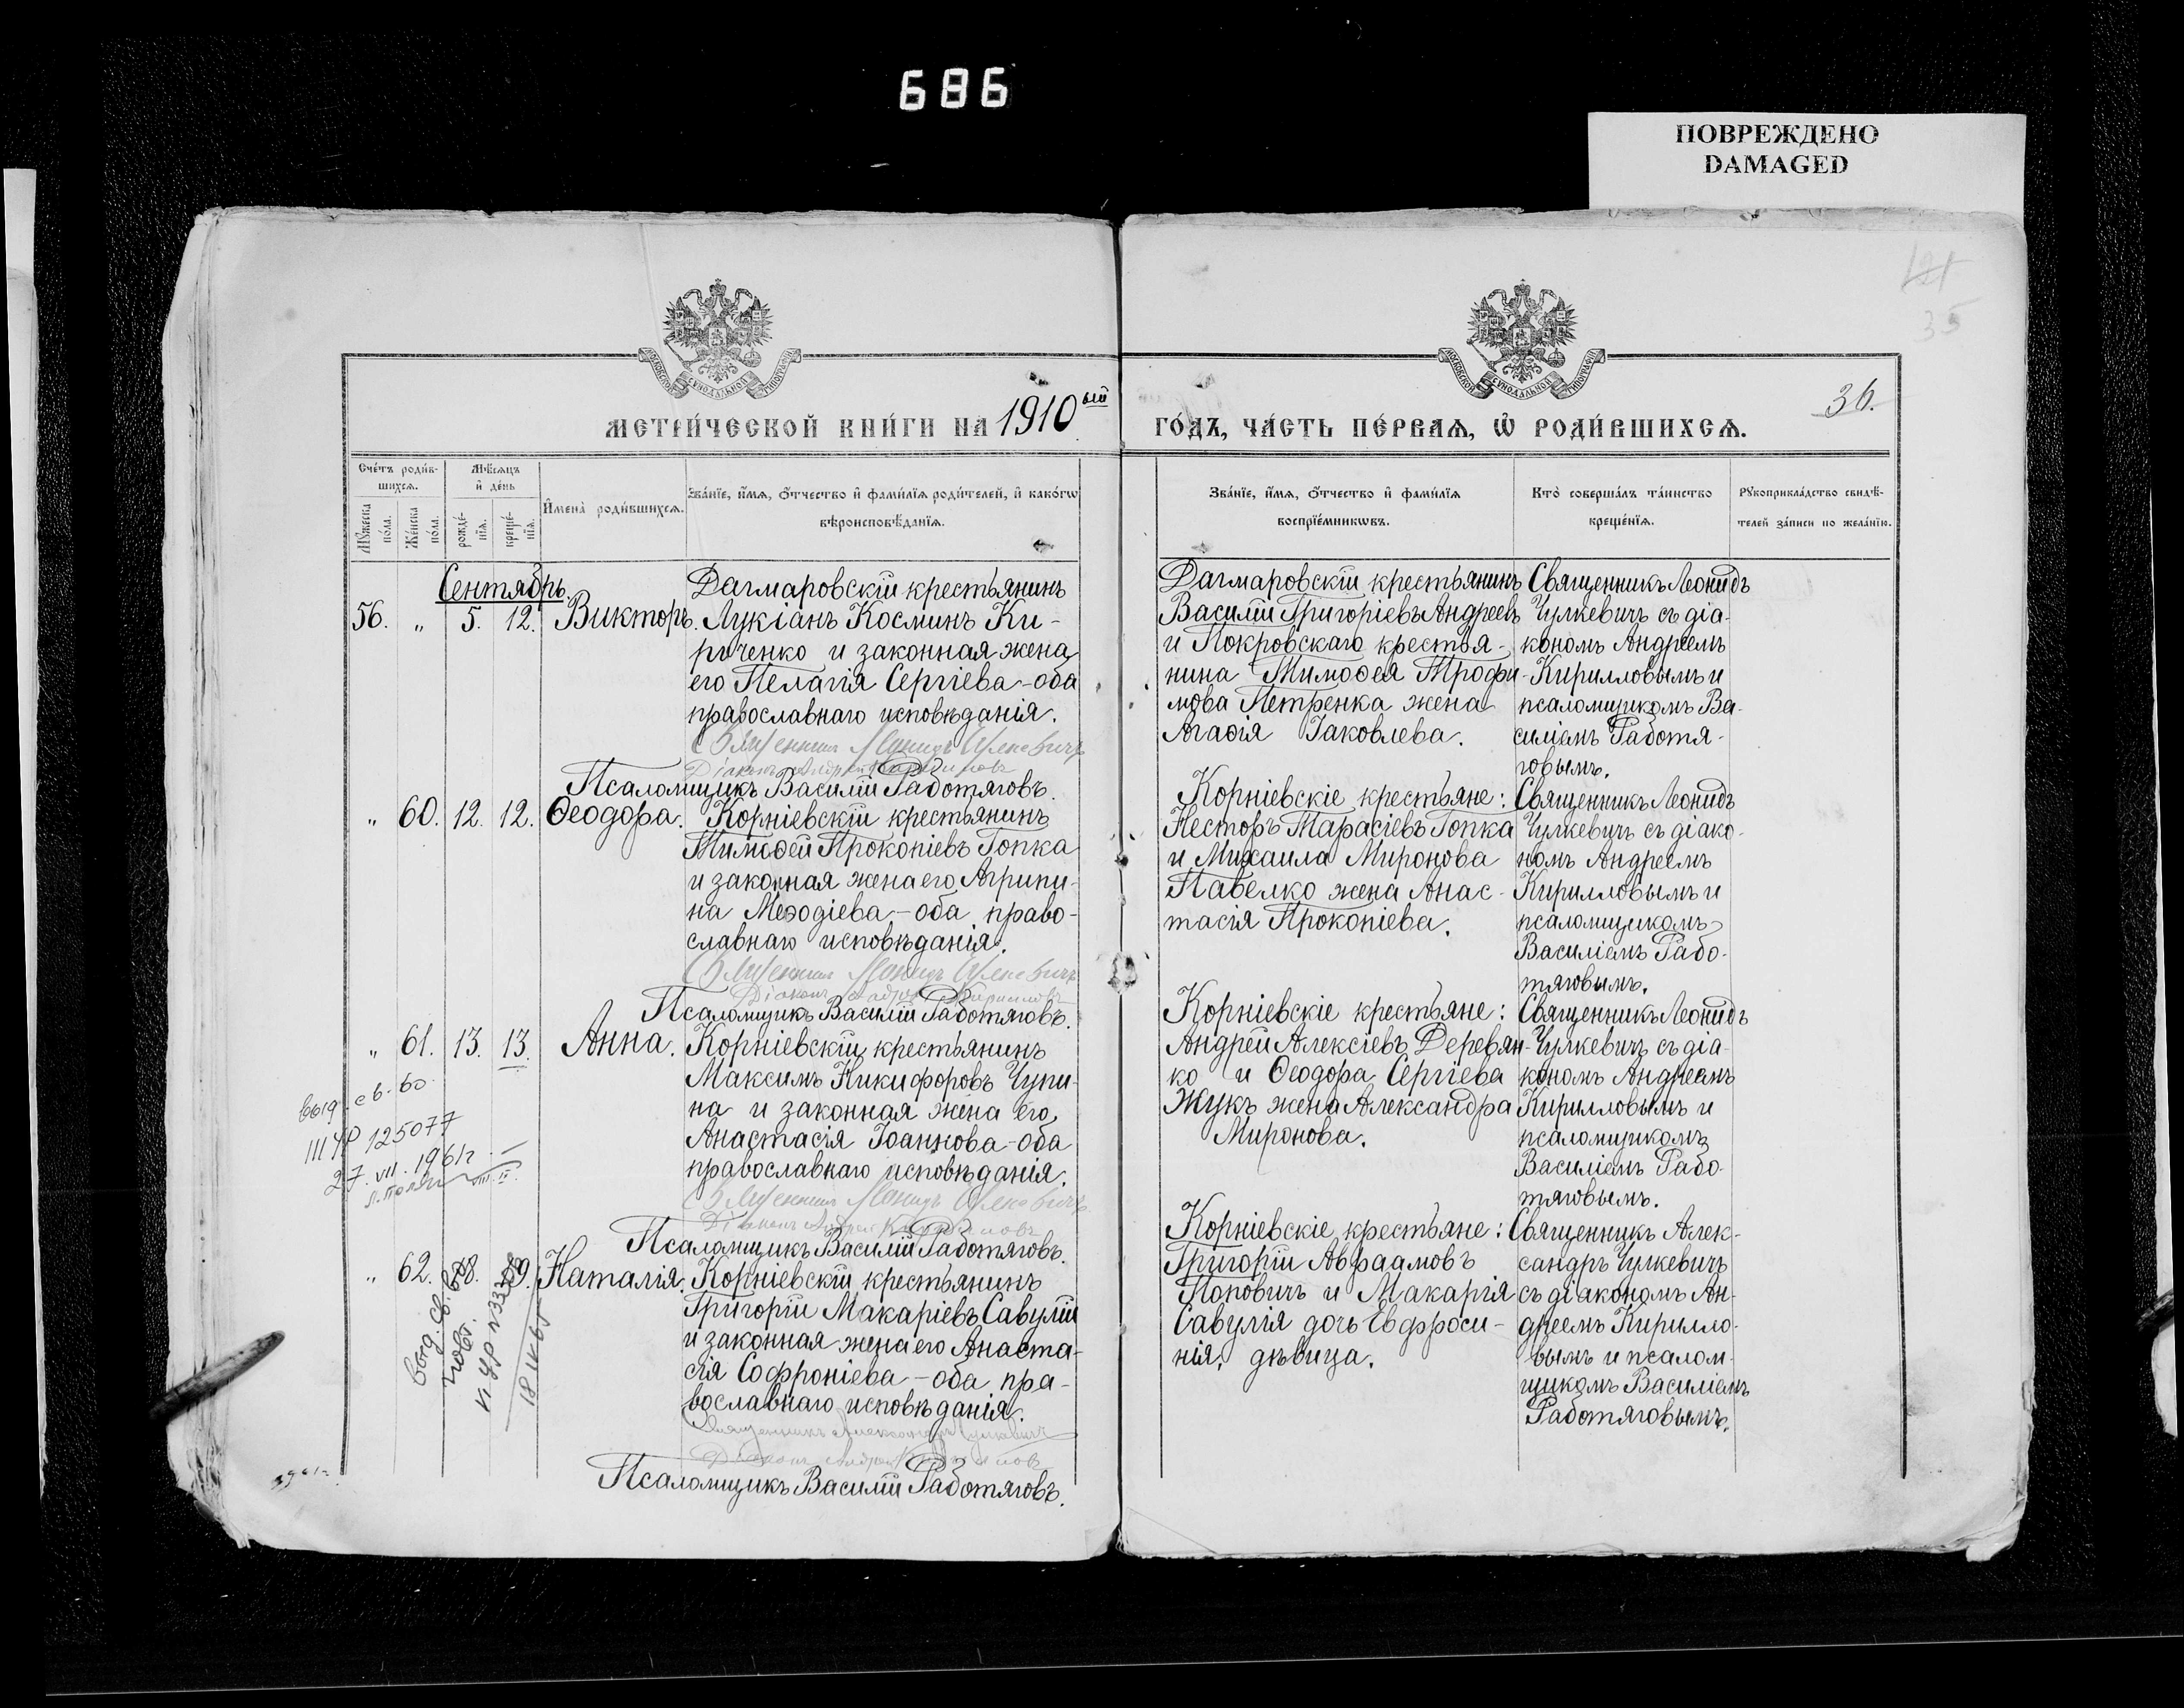 686
ПОВРЕЖДЕНО
DAMAGED
35
36.
МЕТРИ́ЧЕСКОЙ КНИ́ГИ НА 1910ый
ГО́ДЪ, ЧА́СТЬ ПЕ́РВАѦ, Ѡ҆ РОДИ́ВШИХСѦ.
Сче́тъ роди́в-
шихсѧ.
Мѣ́сѧцъ
и҆ де́нь
Мꙋ́жеска по́ла.
Же́нска по́ла.
рожде́-
нїѧ.
креще́-
нїѧ.
И҆мена̀ роди́вшихсѧ.
Зва́нїе, и҆́мѧ, ѻ҆́тчество и҆ фами́лїѧ роди́телей, и҆ како́гѡ
вѣроисповѣ́данїѧ.
Зва́нїе, и҆́мѧ, ѻ҆́тчество и҆ фами́лїѧ
воспрїе́мникѡвъ.
Кто̀ соверша́лъ та́инство
креще́нїѧ.
Рꙋкоприкла́дство свидѣ́-
телей за́писи по жела́нїю.
Сентябрь.
56. „ 5. 12. Викторъ.
Дагмаровскій крестьянинъ
Лукіанъ Косминъ Ки-
риченко и законная жена
его Пелагія Сергіева - оба
православнаго исповѣданія.
Священникъ Леонидъ Чулкевичъ
Діаконъ Андрей Кирилловъ
Псаломщикъ Василій Работяговъ.
Дагмаровскій крестьянинъ
Василій Григоріевъ Андреевъ
и Покровскаго крестья-
нина Тимоѳея Трофи-
мова Петренка жена
Агаѳія Іаковлева.
Священникъ Леонидъ
Чулкевичъ съ діа-
кономъ Андреемъ
Кирилловымъ и
псаломщикомъ Ва-
силіемъ Работя-
говымъ.
„ 60. 12. 12. Ѳеодора.
Корніевскій крестьянинъ
Тимоѳей Прокопіевъ Гопка
и законная жена его Агрипи-
на Меѳодіева - оба право-
славнаго исповѣданія.
Священникъ Леонидъ Чулкевичъ
Діаконъ Андрей Кирилловъ
Псаломщикъ Василій Работяговъ.
Корніевскіе крестьяне:
Несторъ Тарасіевъ Гопка
и Михаила Миронова
Павелко жена Анас-
тасія Прокопіева.
Священникъ Леонидъ
Чулкевичъ съ діако-
номъ Андреемъ
Кирилловымъ и
псаломщикомъ
Василіемъ Рабо-
тяговымъ.
„ 61. 13. 13. Анна.
Корніевскій крестьянинъ
Максимъ Никифоровъ Чупи-
на и законная жена его
Анастасія Іоаннова - оба
православнаго исповѣданія.
Священникъ Леонидъ Чулкевичъ
Діаконъ Андрей Кирилловъ
Псаломщикъ Василій Работяговъ.
Корніевскіе крестьяне:
Андрей Алексіевъ Деревян-
ко и Ѳеодора Сергіева
Жукъ жена Александра
Миронова.
Священникъ Леонидъ
Чулкевичъ съ діа-
кономъ Андреемъ
Кирилловымъ и
псаломщикомъ
Василіемъ Рабо-
тяговымъ.
выд. св-во
III УР 125077
27. VII. 1961г
„ 62. Наталія.
Корніевскій крестьянинъ
Григорій Макаріевъ Савулій
и законная жена его Анаста-
сія Софроніева - оба пра-
вославнаго исповѣданія.
Священникъ Александръ Чулкевичъ
Діаконъ Андрей Кирилловъ
Псаломщикъ Василій Работяговъ.
Корніевскіе крестьяне:
Григорій Авраамовъ
Поповичъ и Макарія
Савулія дочь Евфроси-
нія, дѣвица.
Священникъ Алек-
сандръ Чулкевичъ
съ діакономъ Ан-
дреемъ Кирилло-
вымъ и псалом-
щикомъ Василіемъ
Работяговымъ.
выд. св-во
повт.